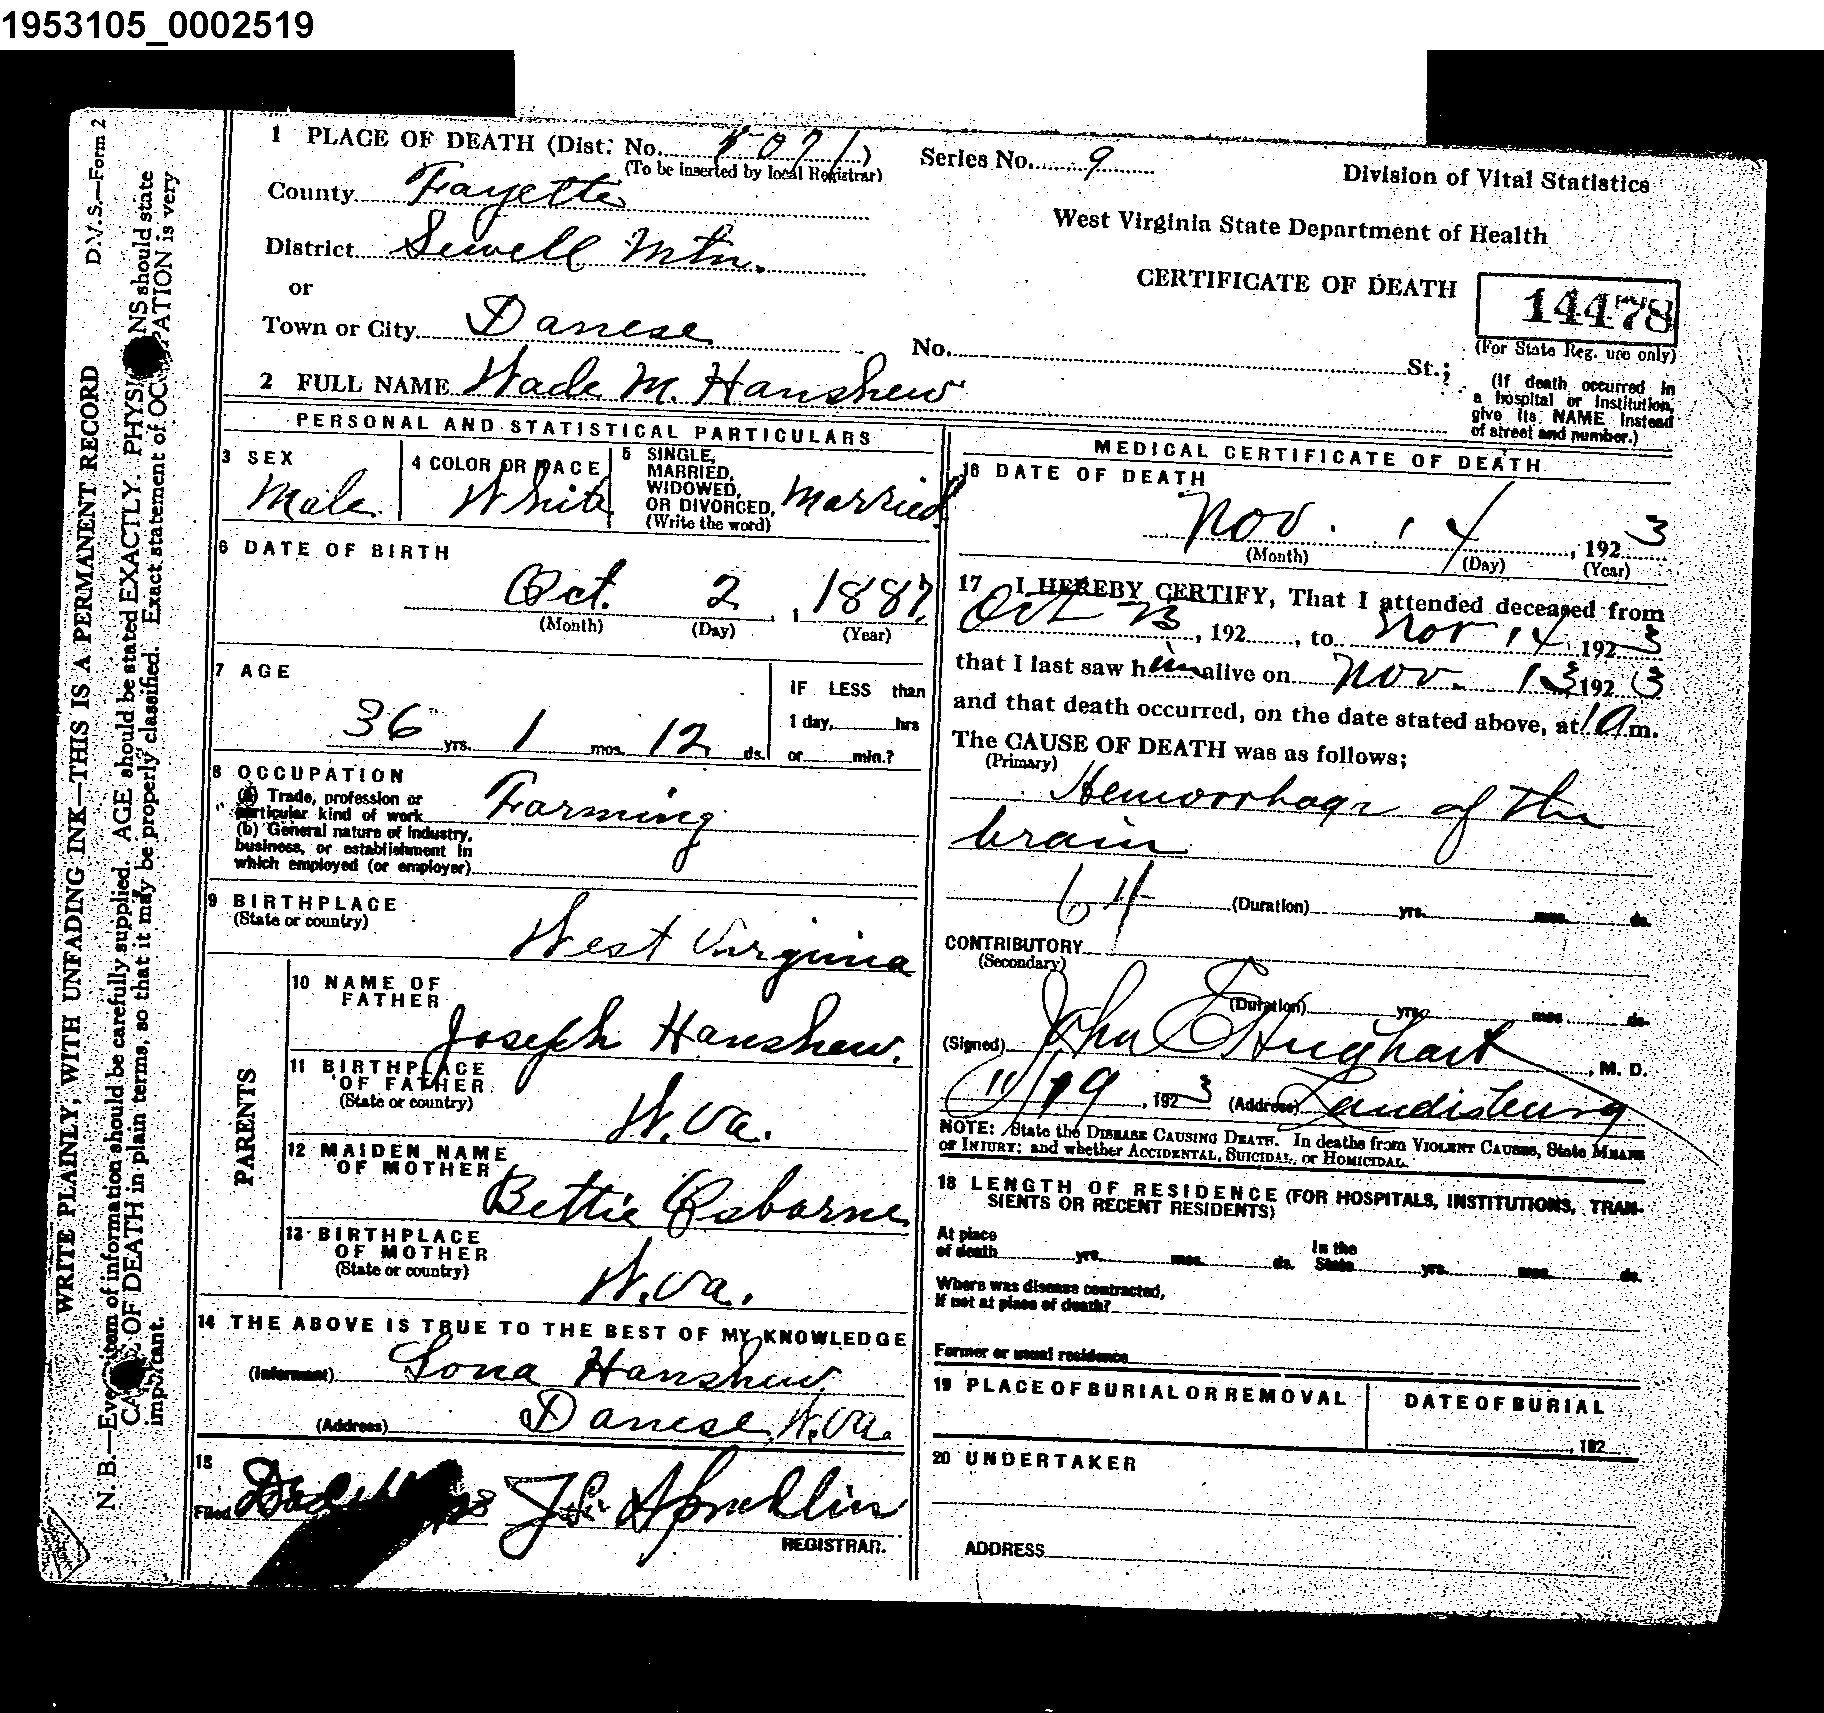 1953105_0002519
D.V.S.—Form 2
WRITE PLAINLY, WITH UNFADING INK—THIS IS A PERMANENT RECORD
N. B.—Every item of information should be carefully supplied. AGE should be stated EXACTLY. PHYSI NS should state
CA OF DEATH in plain terms, so that it may be properly classified. Exact statement of OC PATION is very
important.
1 PLACE OF DEATH (Dist. No.
(To be inserted by local Registrar)
Series No. 9
County Fayette
District Sewell Mtn.
or
Town or City Danese
2 FULL NAME Wade M. Hanshew
Division of Vital Statistics
West Virginia State Department of Health
CERTIFICATE OF DEATH
14478
(For State Reg. use only)
No. St.;
(If death occurred in
a hospital or institution,
give its NAME instead
of street and number.)
PERSONAL AND STATISTICAL PARTICULARS
3 SEX
Male
4 COLOR OR RACE
White
5 SINGLE,
MARRIED,
WIDOWED,
OR DIVORCED,
(Write the word)
Married
6 DATE OF BIRTH
Oct. 2, 1887
(Month) (Day) (Year)
7 AGE
36 yrs. 1 mos. 12 ds.
IF LESS than
1 day, hrs
or min.?
8 OCCUPATION
(a) Trade, profession or
particular kind of work Farming
(b) General nature of industry,
business, or establishment in
which employed (or employer)
9 BIRTHPLACE
(State or country)
West Virginia
PARENTS
10 NAME OF
FATHER
Joseph Hanshew.
11 BIRTHPLACE
OF FATHER
(State or country)
W.Va.
12 MAIDEN NAME
OF MOTHER
Bettie Osborne
13 BIRTHPLACE
OF MOTHER
(State or country)
W.Va.
14 THE ABOVE IS TRUE TO THE BEST OF MY KNOWLEDGE
(Informant) Lona Hanshew
(Address) Danese, W.Va.
15
Filed
REGISTRAR.
MEDICAL CERTIFICATE OF DEATH
16 DATE OF DEATH
Nov. 14, 1923
(Month) (Day) (Year)
17 I HEREBY CERTIFY, That I attended deceased from
Oct , 192 , to Nov 14, 1923
that I last saw him alive on Nov. 13 1923
and that death occurred, on the date stated above, at 1 a m.
The CAUSE OF DEATH was as follows;
(Primary)
Hemorrhage of the
brain
(Duration) yrs. mos. ds.
CONTRIBUTORY
(Secondary)
(Duration) yrs. mos. ds.
(Signed) John E Hughart, M. D.
11/19, 1923 (Address) Landisburg
NOTE: State the DISEASE CAUSING DEATH. In deaths from VIOLENT CAUSES, State MEANS
OF INJURY; and whether ACCIDENTAL, SUICIDAL, or HOMICIDAL.
18 LENGTH OF RESIDENCE (FOR HOSPITALS, INSTITUTIONS, TRAN-
SIENTS OR RECENT RESIDENTS)
At place
of death yrs. mos. ds.
In the
State yrs. mos. ds.
Where was disease contracted,
if not at place of death?
Former or usual residence
19 PLACE OF BURIAL OR REMOVAL
DATE OF BURIAL
, 192
20 UNDERTAKER
ADDRESS